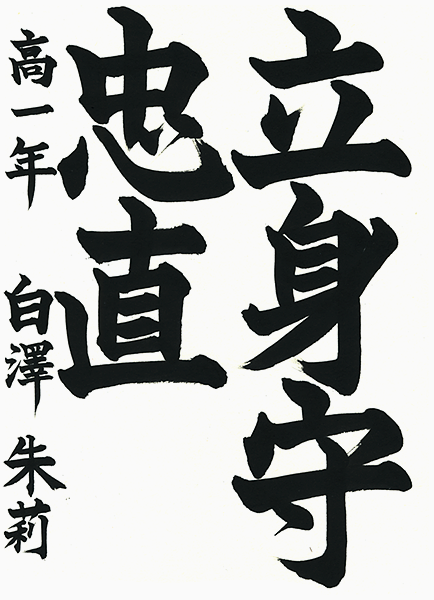 立身守
忠直
高一年 白澤 朱莉